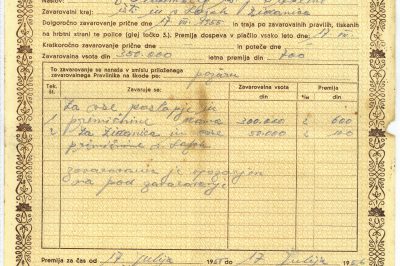 Naslov:
Zavarovalni kraj:
Dolgoročno zavarovanje prične dne 17. VII. 1955. in traja po zavarovalnih pravilih, tiskanih
na hrbtni strani te police (glej točko 3.). Premija dospeva v plačilo vsako leto dne 17. VII.
Kratkoročno zavarovanje prične dne in poteče dne
Zavarovalna vsota din 350.000 letna premija din 700
To zavarovanje se nanaša v smislu priloženega
zavarovalnega Pravilnika na škodo po: požaru
Tek. št. Zavaruje se: Zavarovalna vsota din Premija din
Za vse poslopje in
1 premičnine 300.000 2 600
2 Za zidanica in vse 50.000 2 100
premičnine
zavarovanje je
na pod zavarovanje
Premija za čas od 17. julija 1955 do 17. julija 1956